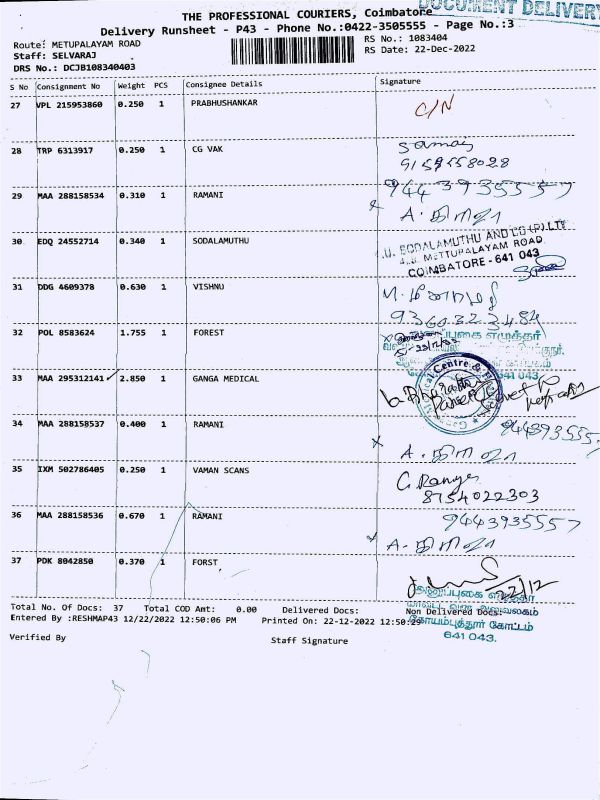 DOCUMENT DELIVERY
THE PROFESSIONAL COURIERS, Coimbatore
Delivery Runsheet - P43 - Phone No.:0422-3505555 - Page No.:3
Route: METUPALAYAM ROAD
RS No.: 1083404
Staff: SELVARAJ
RS Date: 22-Dec-2022
DRS No.: DCJB108340403
S No Consignment No Weight PCS Consignee Details Signature
27 VPL 215953860 0.250 1 PRABHUSHANKAR C/N
28 TRP 6313917 0.250 1 CG VAK
9159558028
29 MAA 288158534 0.310 1 RAMANI 9443935557
30 EDQ 24552714 0.340 1 SODALAMUTHU
SODALAMUTHU AND CO (P) LTD
METTUPALAYAM ROAD
COIMBATORE - 641 043
31 DDG 4609378 0.630 1 VISHNU
9360323484
32 POL 8583624 1.755 1 FOREST
641 043.
33 MAA 295312141 2.850 1 GANGA MEDICAL
34 MAA 288158537 0.400 1 RAMANI 9443935557
35 IXM 502786405 0.250 1 VAMAN SCANS
8754022303
36 MAA 288158536 0.670 1 RAMANI 9443935557
37 PDK 8042850 0.370 1 FORST
22/12
Total No. Of Docs: 37 Total COD Amt: 0.00 Delivered Docs: Non Delivered Docs:
Entered By :RESHMAP43 12/22/2022 12:50:06 PM Printed On: 22-12-2022 12:50:29
கோயம்புத்தூர் கோட்டம்
641 043.
Verified By
Staff Signature